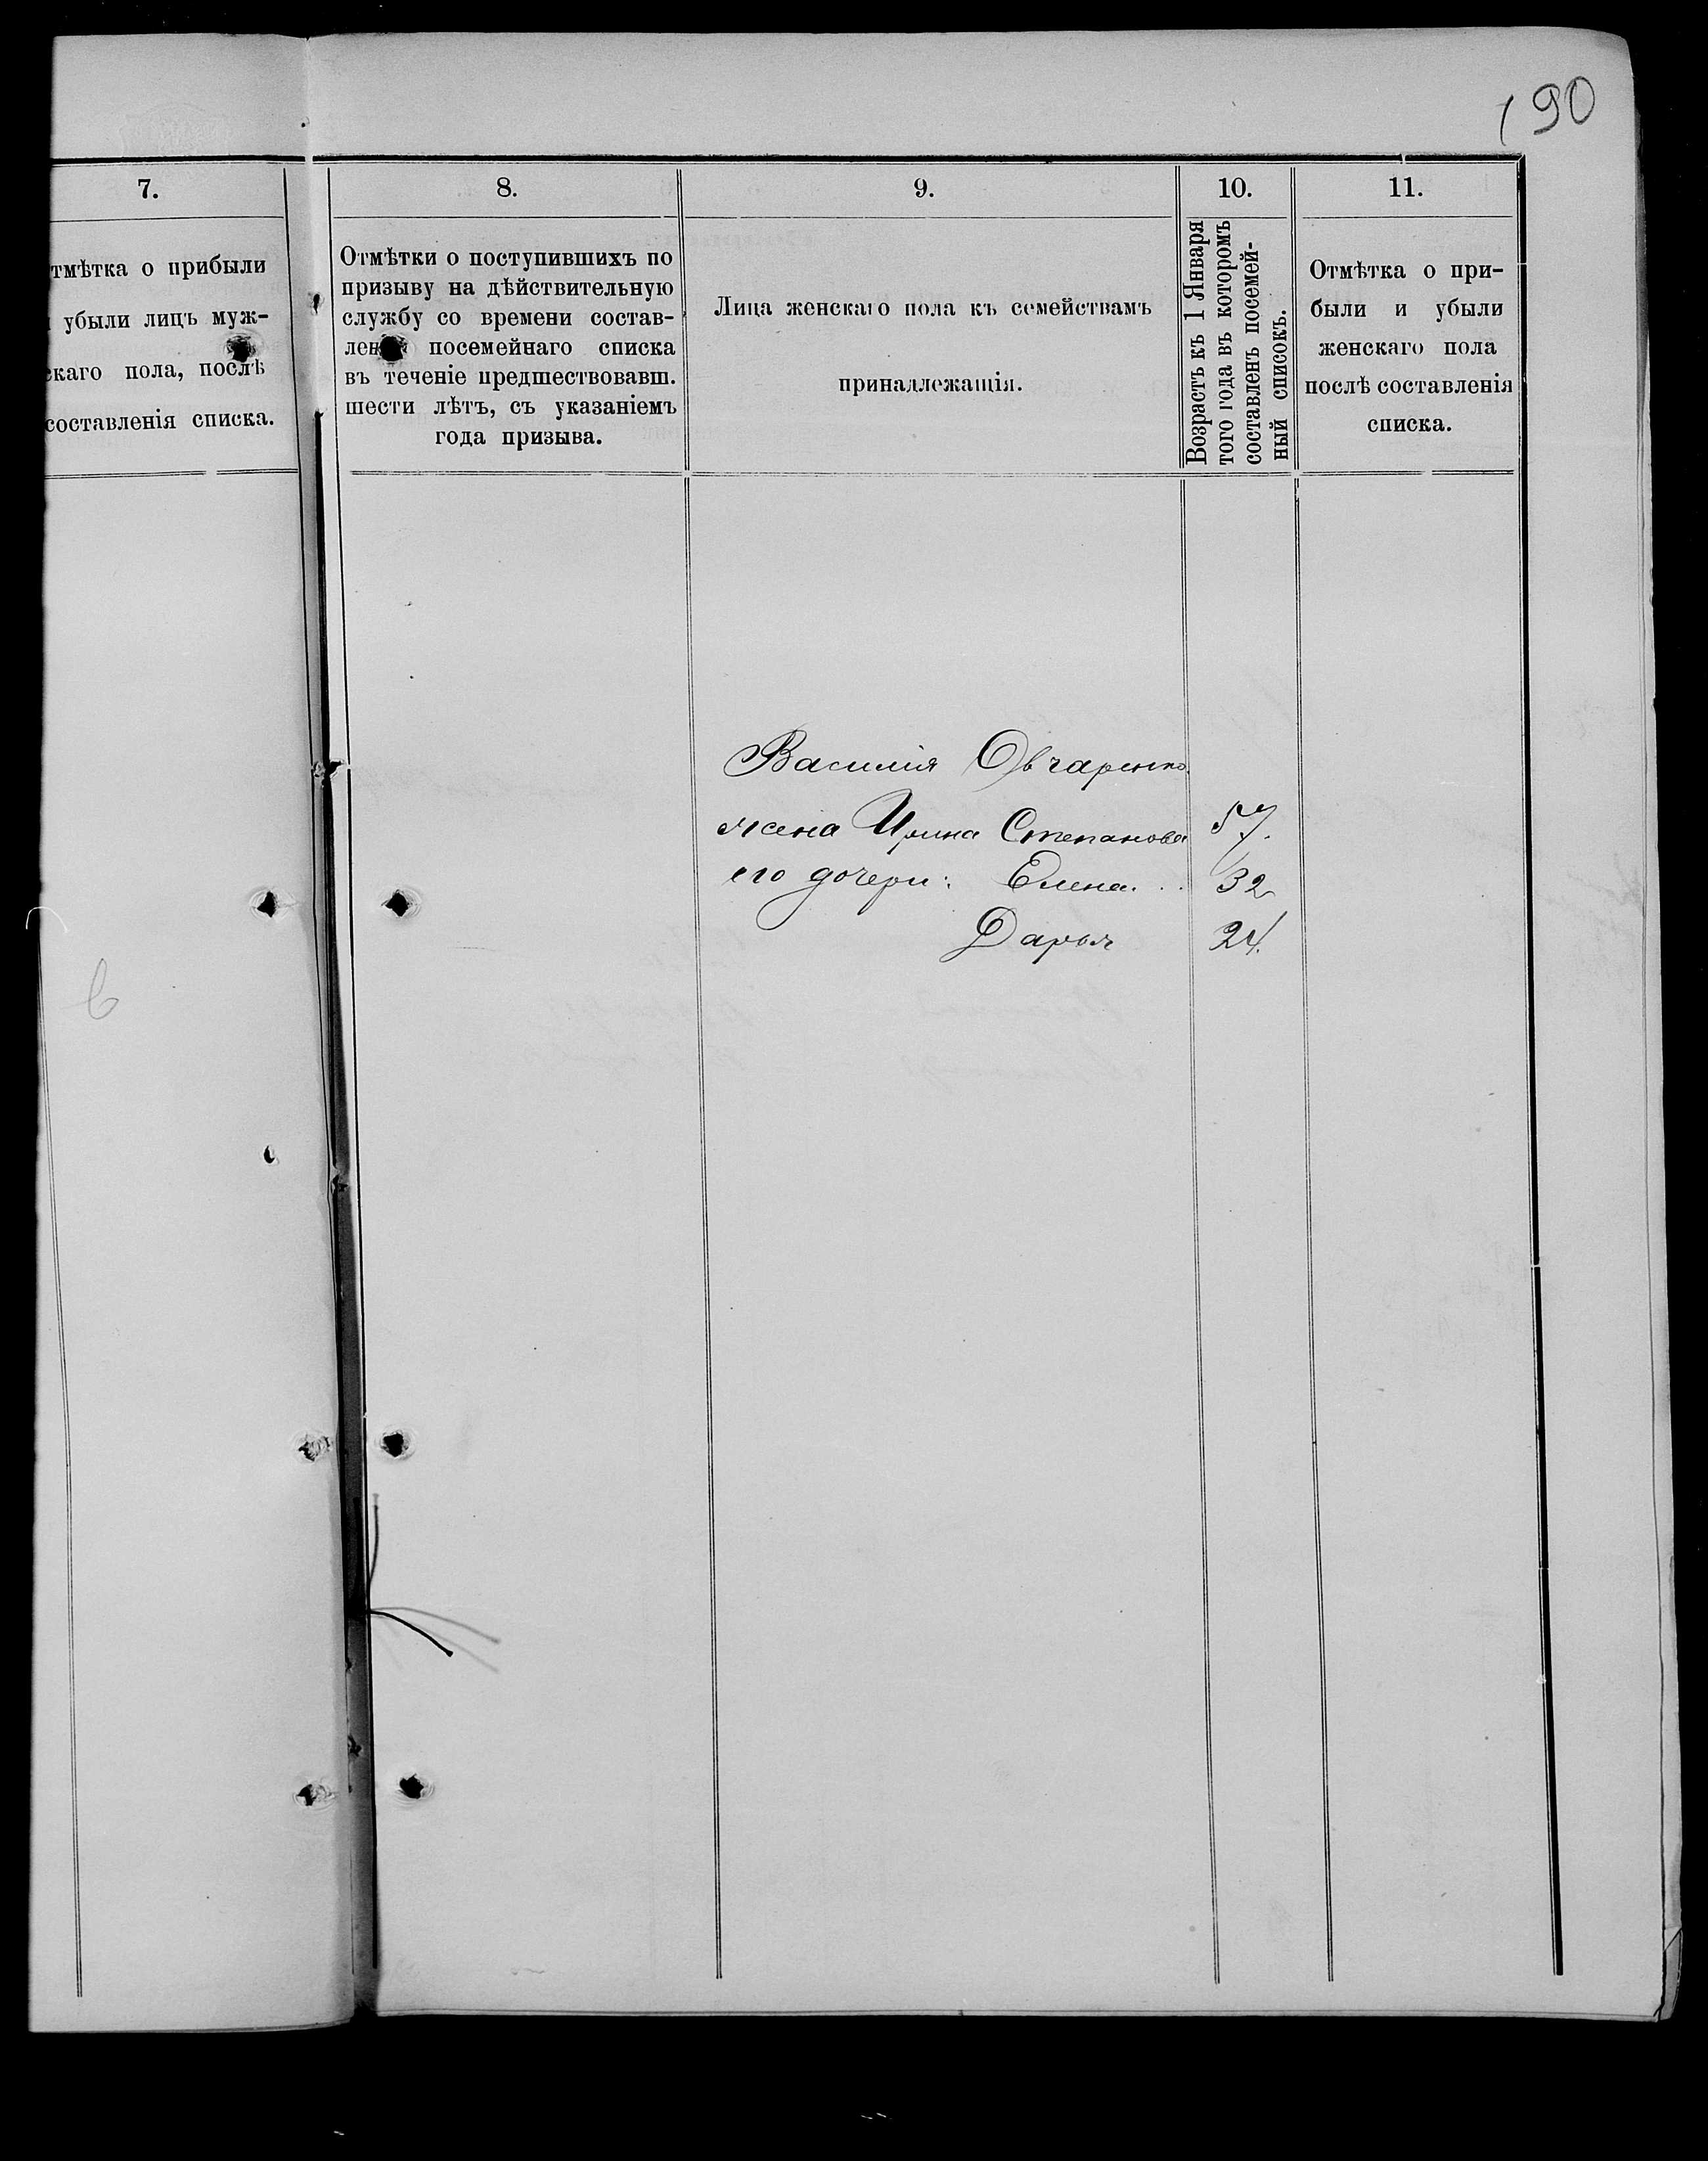 190
7.
тмѣтка о прибыли
убыли лицъ муж-
скаго пола, послѣ
составленія списка.
8.
Отмѣтки о поступившихъ по
призыву на дѣйствительную
службу со времени состав-
лен посемейнаго списка
въ теченіе предшествовавш.
шести лѣтъ, съ указаніемъ
года призыва.
9.
Лица женскаго пола къ семействамъ
принадлежащія.
10.
Возрастъ къ 1 Января
того года въ которомъ
составленъ посемей-
ный списокъ.
11.
Отмѣтка о при-
были и убыли
женскаго пола
послѣ составленія
списка.
Василія Овчаренко
жена Ирина Степанова 57.
его дочери: Елена. . . 32
Дарья 24.
в